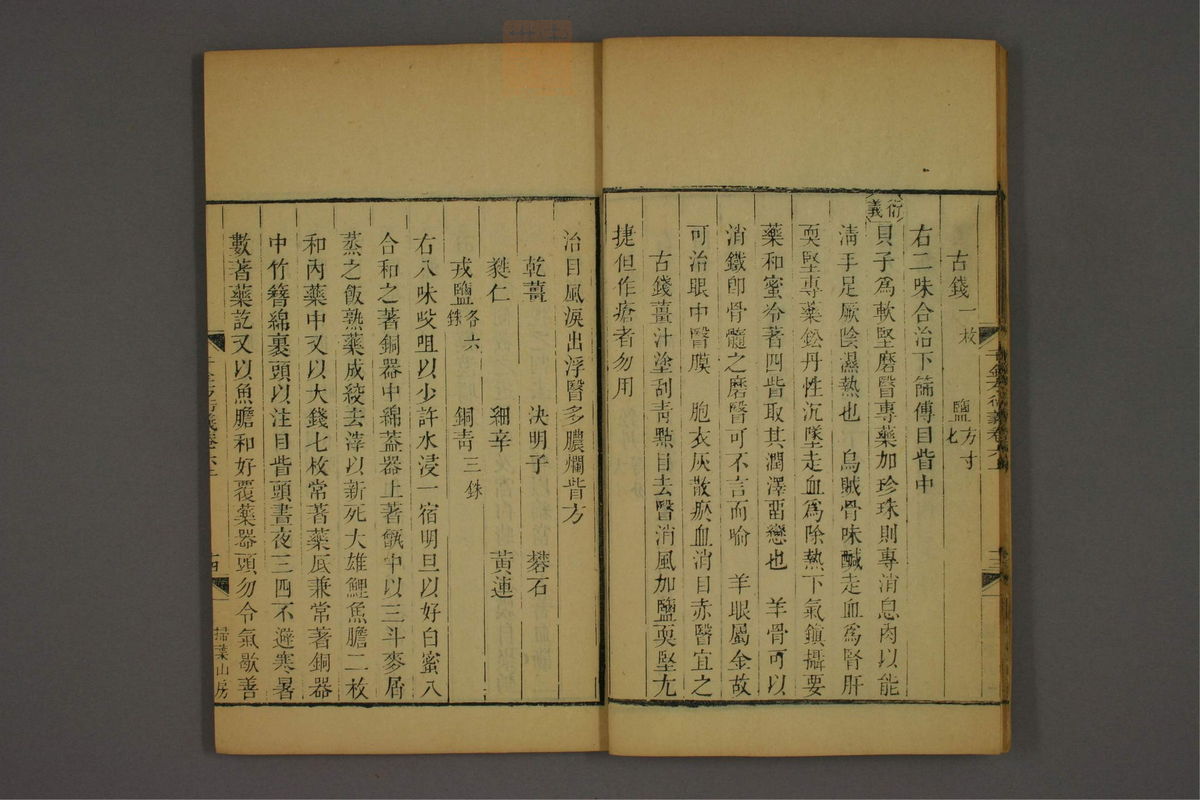 古錢一枚　鹽方寸匕
右二味合治下篩傅目眥中
衍義
貝子爲軟堅磨醫專藥加珍珠則專消息肉以能
淸手足厥陰濕熱也　烏賊骨味鹹走血爲腎肝
耎堅專藥鈆丹性沉墜走血爲除熱下氣鎭攝要
藥和蜜分著四眥取其潤澤畱戀也　羊骨可以
消鐵卽骨髓之磨醫可不言而喻　羊眼屬金故
可治眼中醫膜　胞衣灰散瘀血消目赤醫宜之
古錢薑汁塗刮靑點目去醫消風加鹽耎堅尢
捷但作瘡者勿用
治目風淚出浮醫多膿爛眥方
乾薑　決明子　礬石
蕤仁　細辛　黃連
戎鹽各六銖　銅靑三銖
右八味㕮咀以少許水浸一宿明旦以好白蜜八
合和之著銅器中綿蓋器上著甑中以三斗麥屑
蒸之飯熟藥成綾去滓以新死大雄鯉魚膽二枚
和內藥中又以大錢七枚常著藥底兼常著銅器
中竹簪綿裹頭以注目眥頭晝夜三四不避寒暑
數著藥訖又以魚膽和好覆藥器頭勿令氣歇善
千金方衍義卷六上
十四
掃葉山房